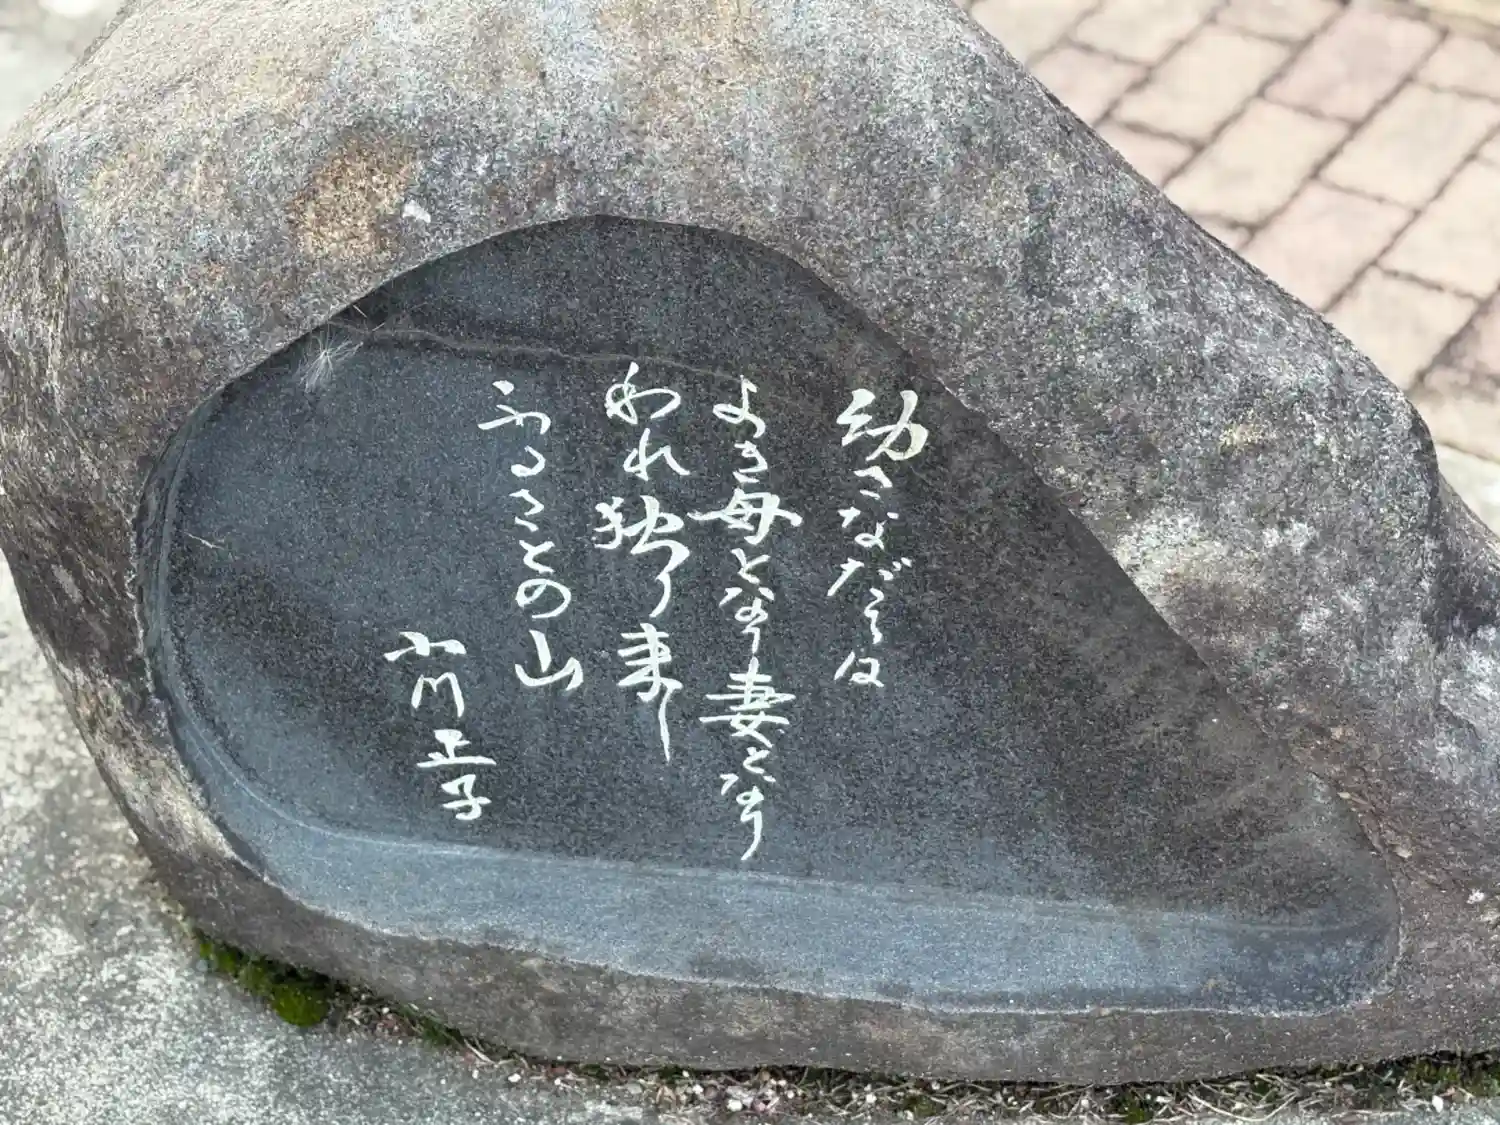 幼さなだちは
よき母となり妻となり
われ独り来し
ふるさとの山
小川正子